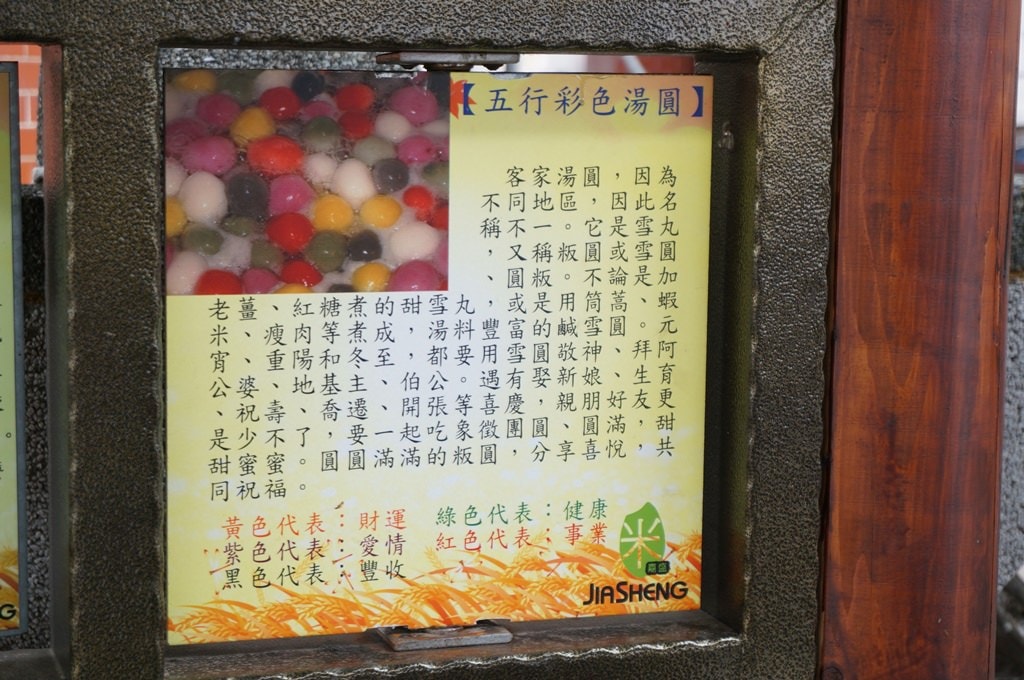 【五行彩色湯圓】
客家湯圓，因為
不同地區，因此名
稱不一。它是雪丸
，又稱版圓或雪圓
、圓版。不論是加
老薑、紅糖煮的甜雪丸，或是用筒蒿、蝦
米、瘦肉等煮成，湯料豐富的鹹雪圓。元
宵、重陽和冬至，都要用雪圓敬神、拜阿
公婆、地基主、伯公。遇有娶新娘、生育
、祝壽、喬遷、開張等喜慶，親朋好友更
是少不了，要一起吃象徵團圓、圓滿，甜
甜蜜蜜。圓圓滿滿的版圓，分享喜悅，共
同祝福。
黃色代表：財運 綠色代表：健康
紫色代表：愛情 紅色代表：事業
黑色代表：豐收
嘉盛
JIASHENG